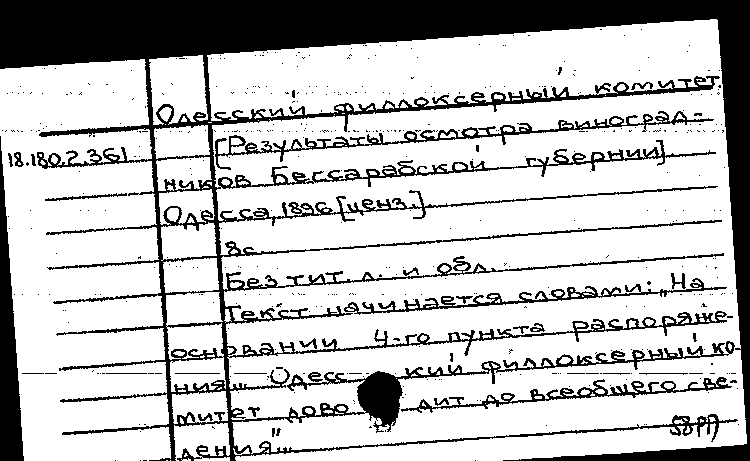 Одесский филлоксерный комитет
18.180.2.361
[Результаты осмотра виноград-
ников Бессарабской губернии]
Одесса, 1896 [ценз.]
8с.
Без тит. л. и обл.
Текст начинается словами: „На
основании 4-го пункта распоряже-
ния... Одесский филлоксерный ко-
митет доводит до всеобщего све-
дения"...